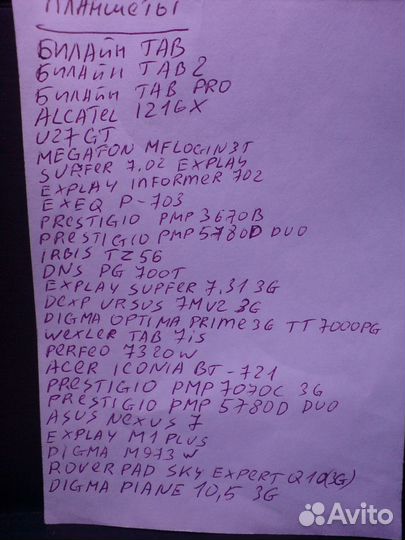 Планшеты
БИЛАЙН TAB
БИЛАЙН TAB 2
БИЛАЙН TAB PRO
ALCATEL 1216X
U27GT
MEGAFON MFLOGIN3T
SURFER 7.02 EXPLAY
EXPLAY INFORMER 702
EXEQ P-703
PRESTIGIO PMP 3670B
PRESTIGIO PMP 5780D DUO
IRBIS TZ56
DNS PG 700T
EXPLAY SURFER 7.31 3G
DEXP URSUS 7MV2 3G
DIGMA OPTIMA PRIME 3G TT7000PG
WEXLER TAB 7iS
PERFEO 7320W
ACER ICONIA BT-721
PRESTIGIO PMP 7070C 3G
PRESTIGIO PMP 5780D DUO
ASUS NEXUS 7
EXPLAY M1 PLUS
DIGMA M973W
ROVERPAD SKY EXPERT Q10(3G)
DIGMA PLANE 10,5 3G
Avito